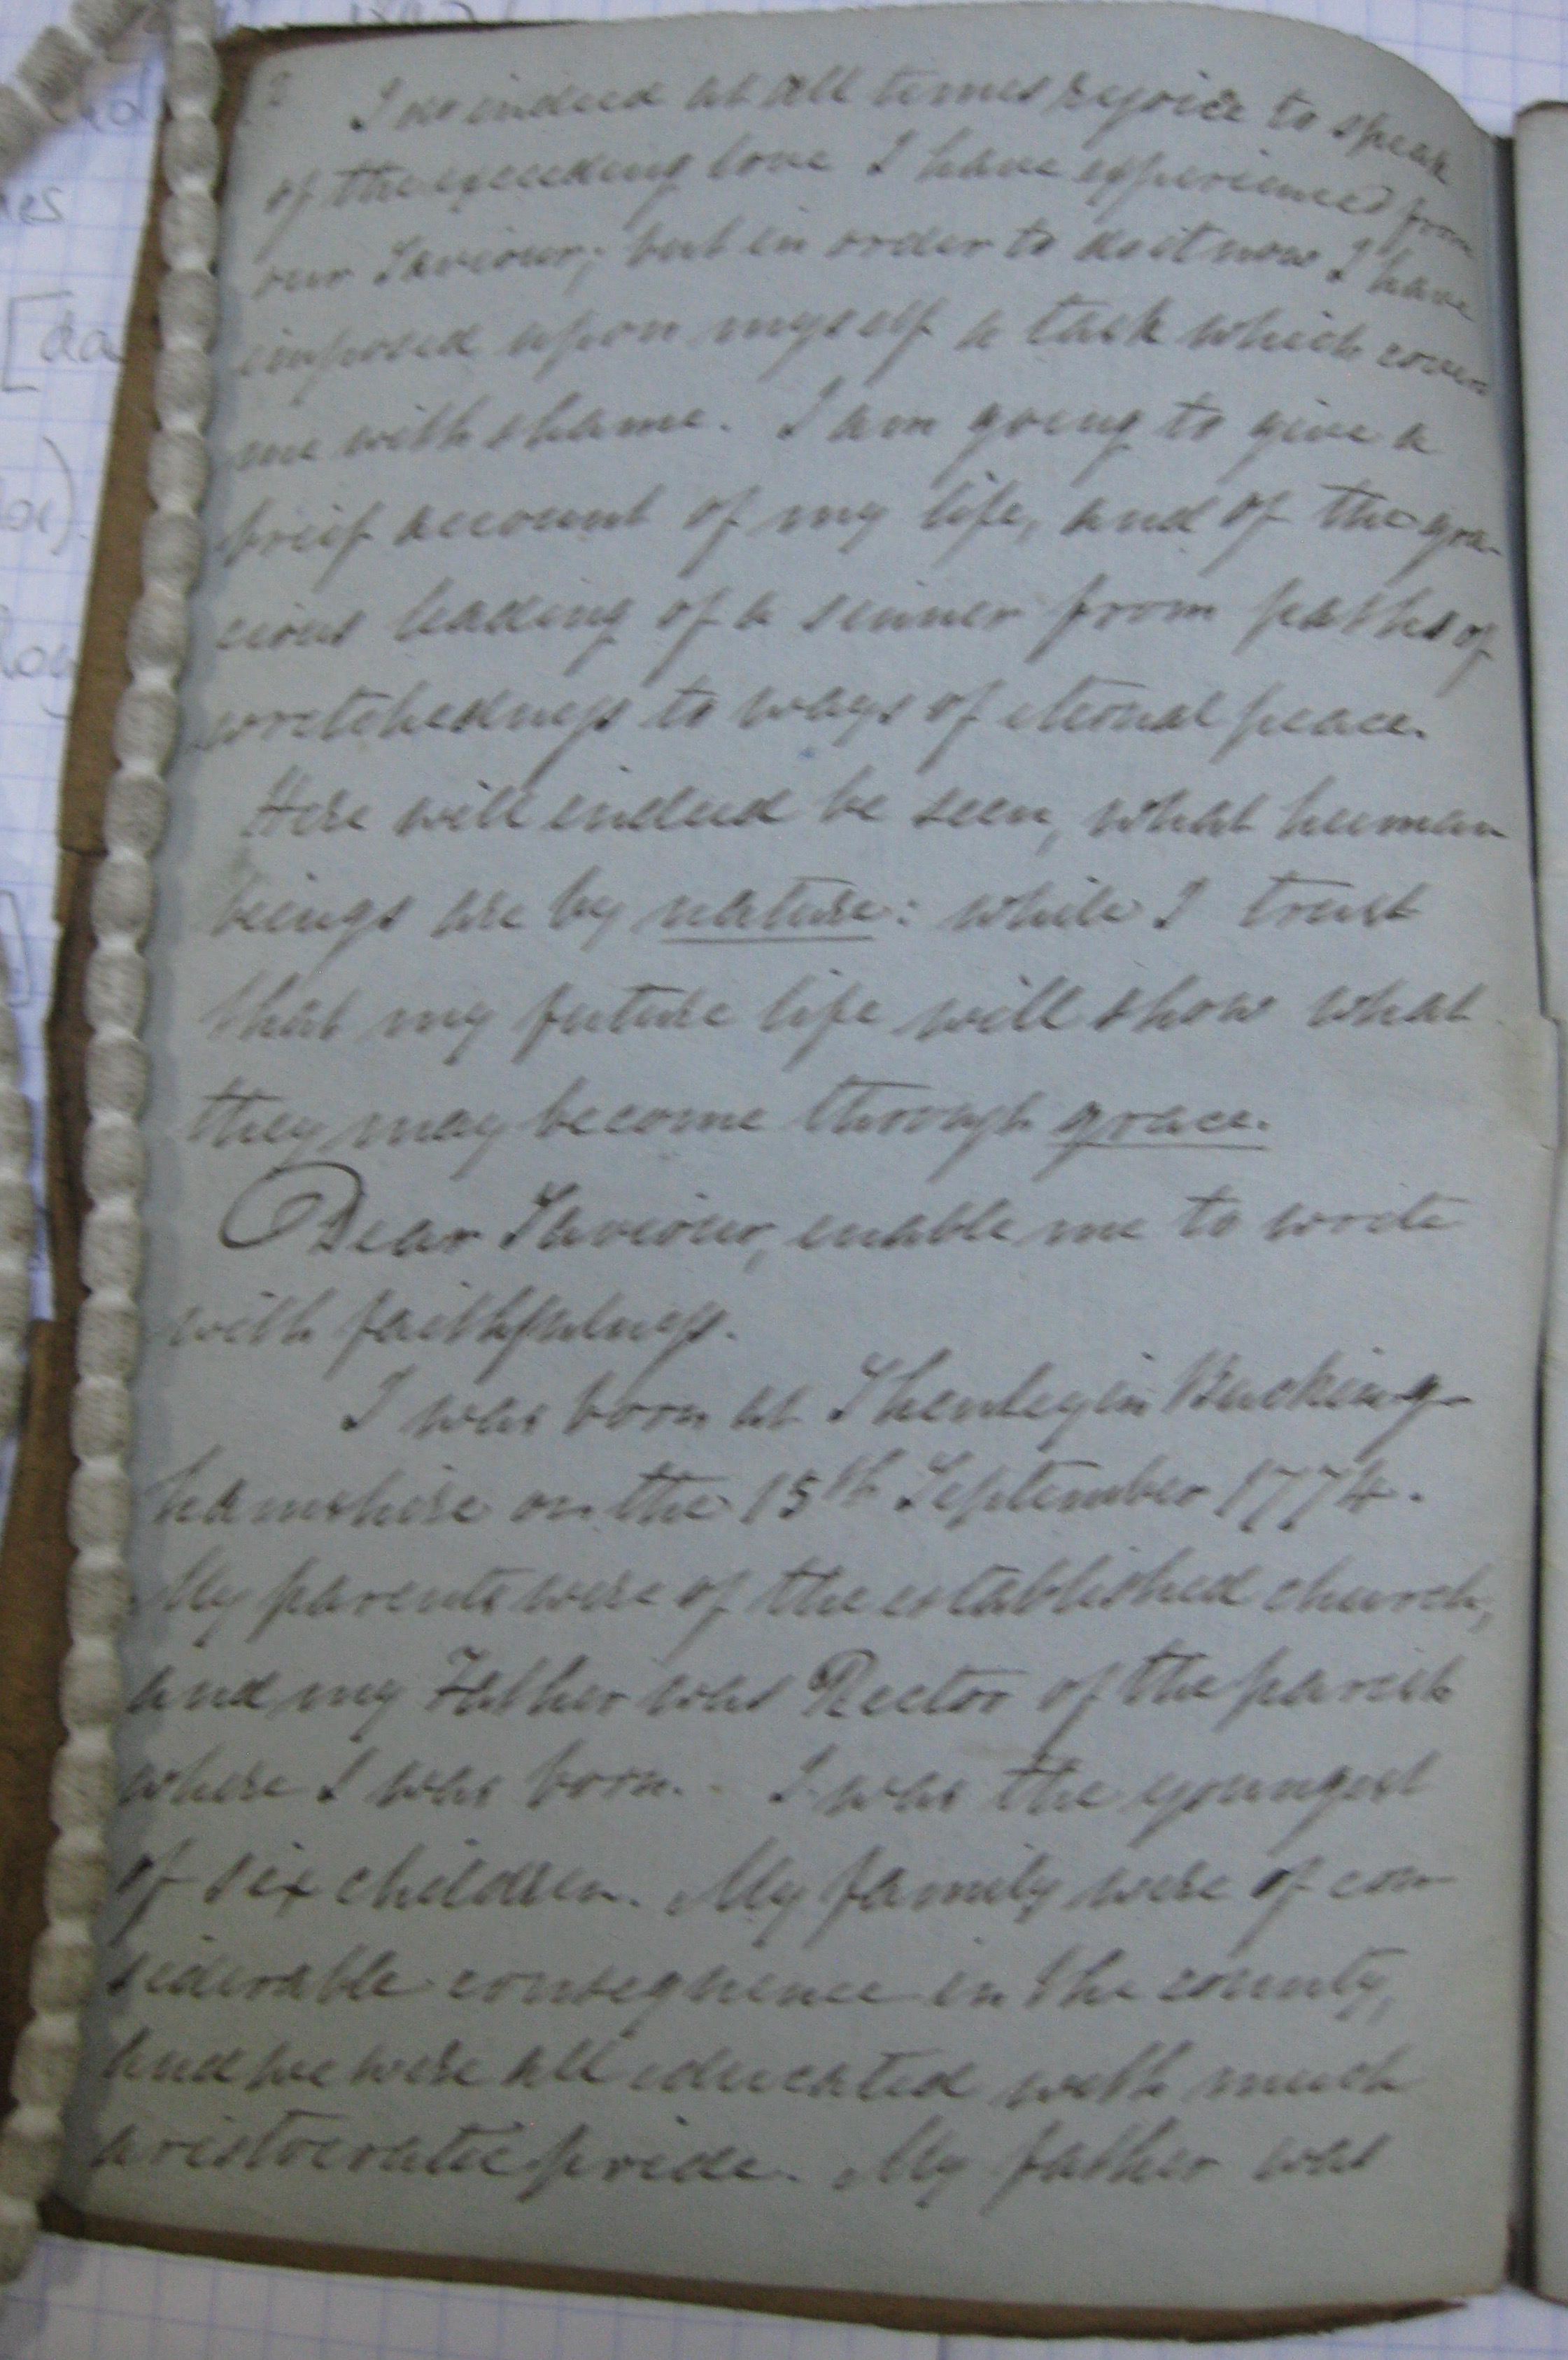 2
I do indeed at all times rejoice to speak
of the exceeding love I have experienced from
our Saviour; but in order to do it now I have
imposed upon myself a task which covers
me with shame. I am going to give a
brief account of my life, and of the gra-
cious leading of a sinner from paths of
wretchedness to ways of eternal peace.
Here will indeed be seen, what human
beings are by nature: while I trust
that my future life will show what
they may become through grace.
Dear Saviour, enable me to write
with faithfulness.
I was born at Shenley in Bucking-
hamshire on the 15th September 1774.
My parents were of the established church,
and my Father was Rector of the parish
where I was born. I was the youngest
of six children. My family were of con-
siderable consequence in the county,
and we were all educated with much
aristocratic pride. My father was
[da